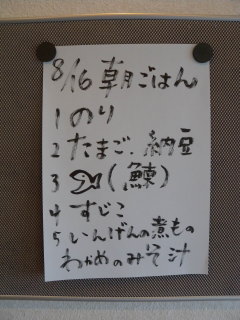 8/16 朝ごはん
1 のり
2 たまご、納豆
3 (鰊)
4 すじこ
5 いんげんの煮もの
わかめのみそ汁